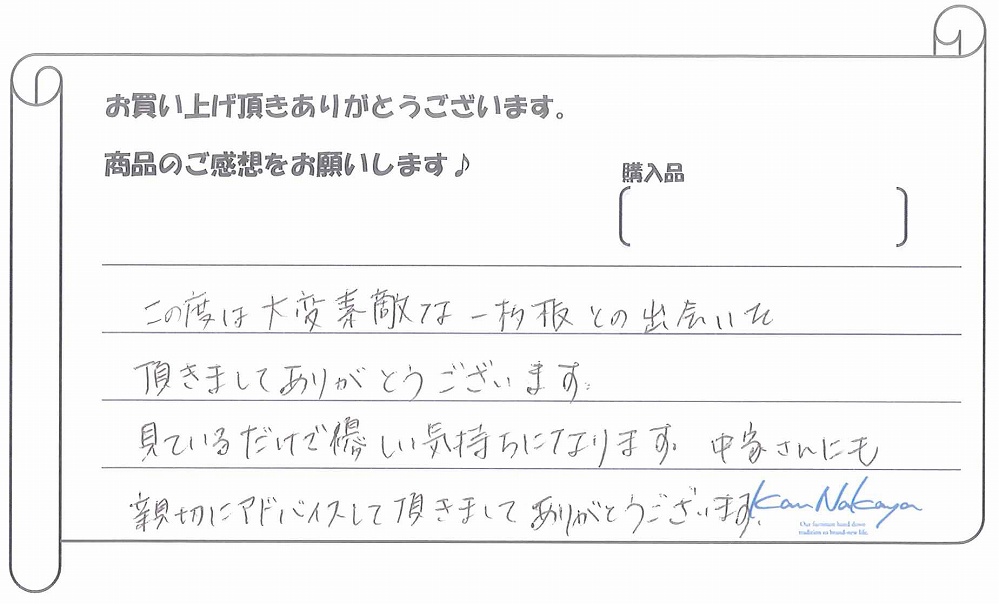 お買い上げ頂きありがとうございます。
商品のご感想をお願いします♪
購入品
この度は大変素敵な一枚板との出会いを
頂きましてありがとうございます。
見ているだけで優しい気持ちになります。中家さんにも
親切にアドバイスして頂きましてありがとうございます。
Kan Nakaya
Our furniture hand down
tradition to brand-new life.